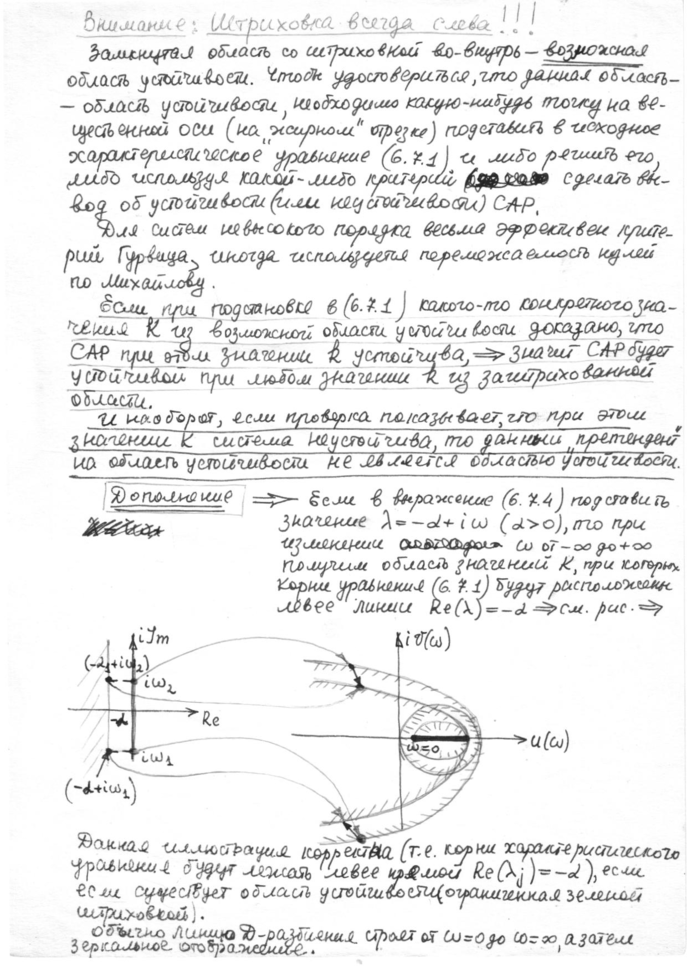 Внимание: Штриховка всегда слева!!!
Замкнутая область со штриховкой во-внутрь – возможная
область устойчивости. Чтобы удостовериться, что данная область–
– область устойчивости, необходимо какую-нибудь точку на ве-
щественной оси (на „жирном" отрезке) подставить в исходное
характеристическое уравнение (6.7.1) и либо решить его,
либо используя какой-либо критерий сделать вы-
вод об устойчивости (или неустойчивости) САР.
Для систем невысокого порядка весьма эффективен крите-
рий Гурвица, иногда используется перемежаемость нулей
по Михайлову.
Если при подстановке в (6.7.1) какого-то конкретного зна-
чения K из возможной области устойчивости доказано, что
САР при этом значении k устойчува, ⇒ значит САР будет
устойчивой при любом значении k из заштрихованной
области.
И наоборот, если проверка показывает, что при этом
значении K система неустойчива, то данный „претендент"
на область устойчивости не является областью устойчивости.
Дополнение ⇒ Если в выражение (6.7.4) подставить
значение λ=-α+iω (α>0), то при
изменении ω от -∞ до +∞
получим область значений K, при которых
корни уравнения (6.7.1) будут расположены
левее линии Re(λ)=-α ⇒ см. рис. ⇒
iJm
iV(ω)
(-α+iω₂)
iω₂
-α
Re
ω=0
U(ω)
iω₁
(-α+iω₁)
Данная иллюстрация корректна (т.е. корни характеристического
уравнения будут лежать левее прямой Re(λj)=-α), если
если существует область устойчивости (ограниченная зеленой
штриховкой).
Обычно линию D-разбиения строят от ω=0 до ω=∞, а затем
зеркальное отображение.